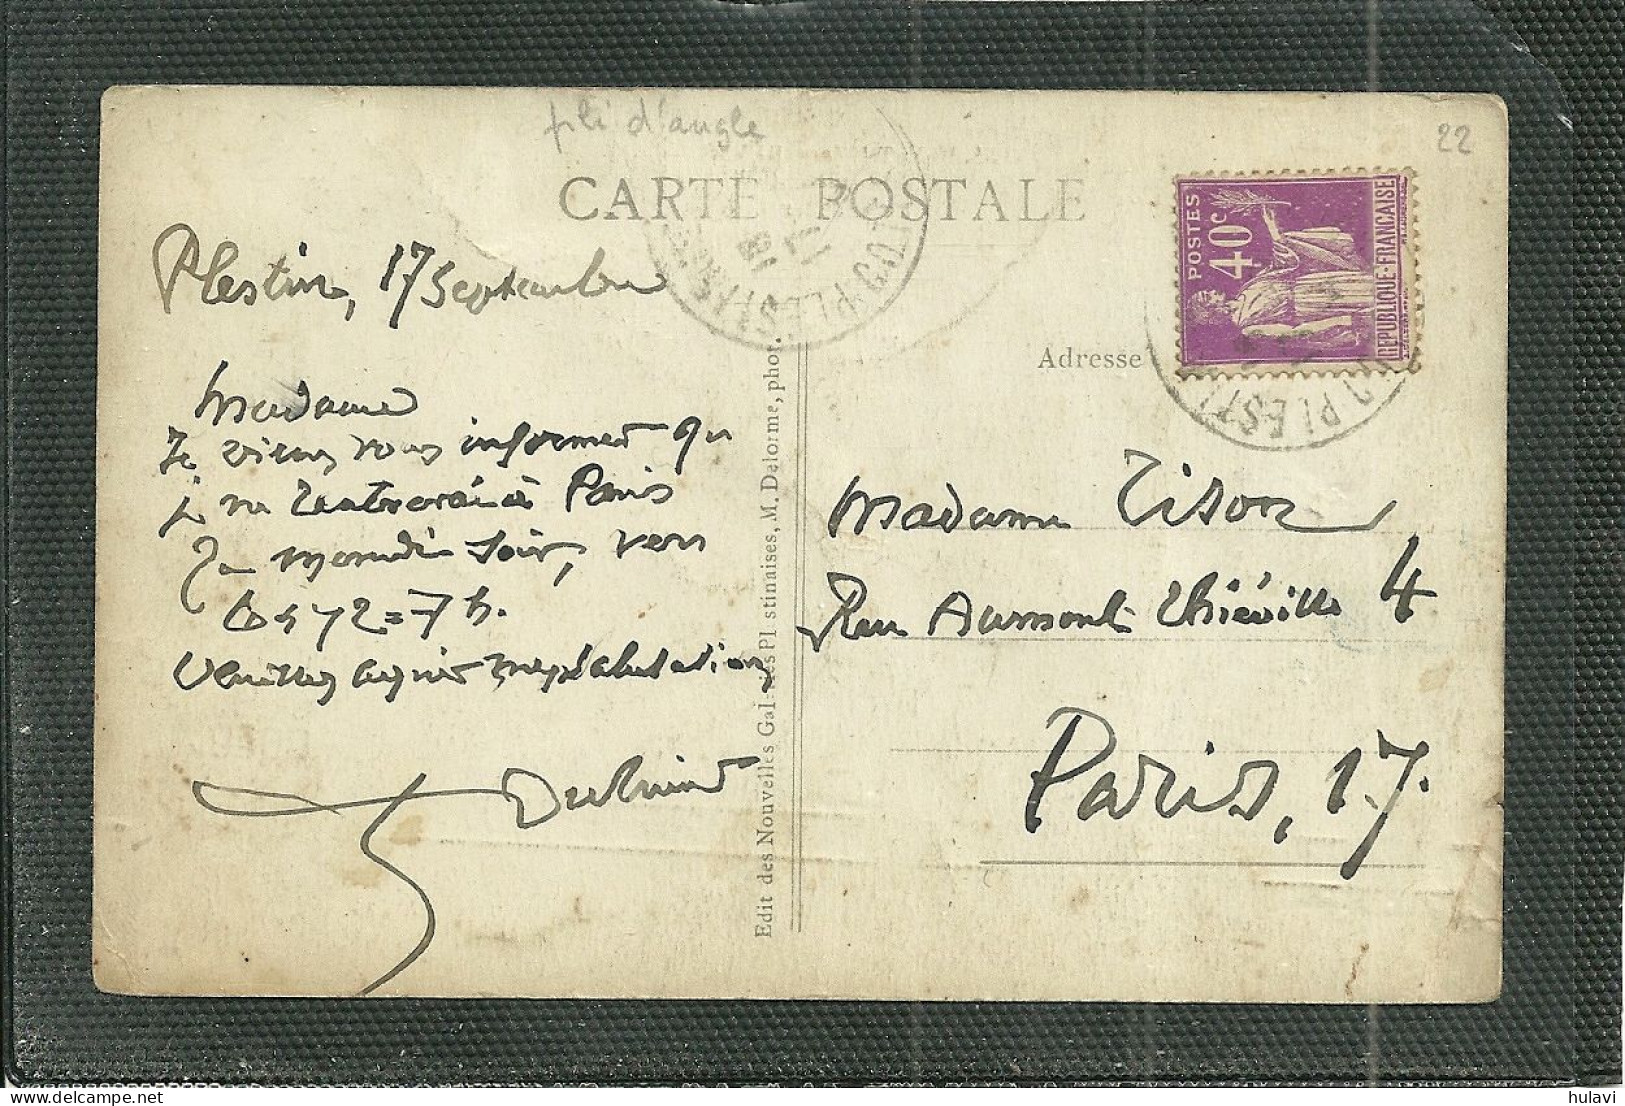 pli d'angle
22
CARTE POSTALE
POSTES
40c
REPUBLIQUE-FRANÇAISE
Plestin, 17 Septembre
Adresse
Madame
Je viens vous informer qu
je ne rentrerai à Paris
que mercredi soir, vers
6 h 1/2 = 7 h.
Veuillez agréer mes salutations
Madame Tison
Rue Aumont Thiéville 4
Paris, 17.
Edit des Nouvelles Gal stinaises, M. Delorme, phot.
PLESTIN
hulavi